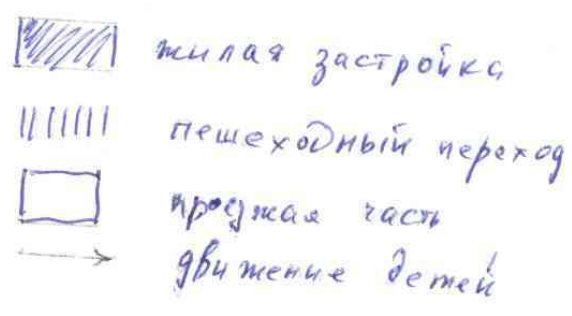 жилая застройка
пешеходный переход
проезжая часть
движение детей